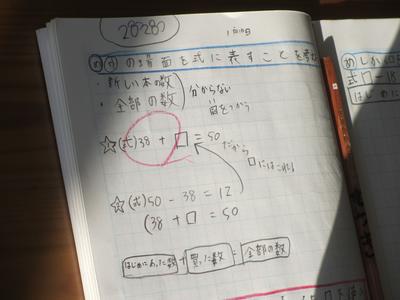 282~280
1月18日
め の場面を式に表すことを考え
・新しい本の数
・全部の数
分からない
図をつかう
☆(式)38 + □ = 50
だから
□にはこれ!
☆(式) 50 - 38 = 12
(38 + □ = 50
はじめにあった数 + 買った数 = 全部の数
め
式□-18
はじめに